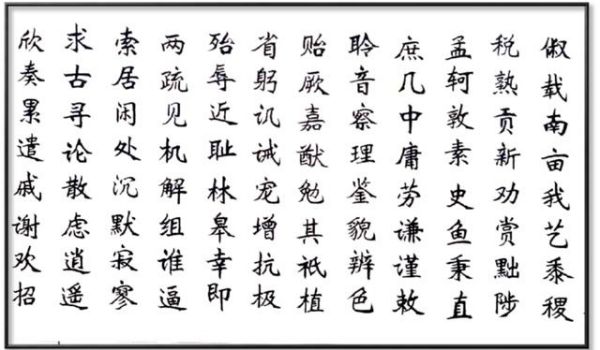 俶载南亩我艺黍稷
税熟贡新劝赏黜陟
孟轲敦素史鱼秉直
庶几中庸劳谦谨敕
聆音察理鉴貌辨色
贻厥嘉猷勉其祗植
省躬讥诫宠增抗极
殆辱近耻林皋幸即
两疏见机解组谁逼
索居闲处沉默寂寥
求古寻论散虑逍遥
欣奏累遣戚谢欢招